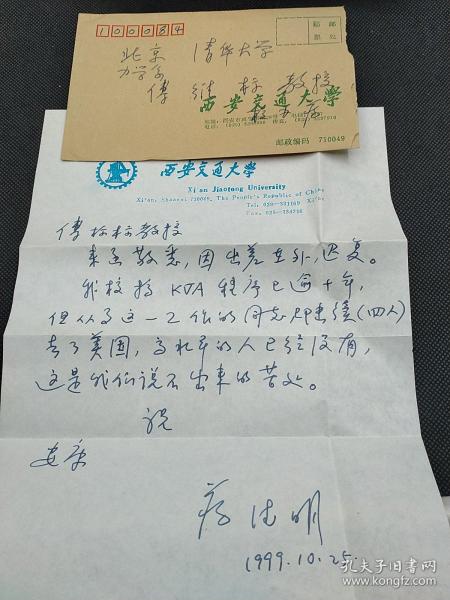 100084
贴邮
票处
北京 清华大学
力学系
傅 继 标 教授
西安交通大学
邮政编码 710049
西安交通大学
Xi'an Jiaotong University
Xi'an, Shaanxi 710049, The People's Republic of China
Tel.
Fax.
傅 教授
来函敬悉,因出差在外,迟复。
我校搞 程序已逾十年,
但从事这一工作的同志陆续(四人)
去了美国,高水平的人已经没有,
这是我们说不出来的苦处。
祝
安康
蒋 明
1999.10.25.
孔夫子旧书网
www.kongfz.com